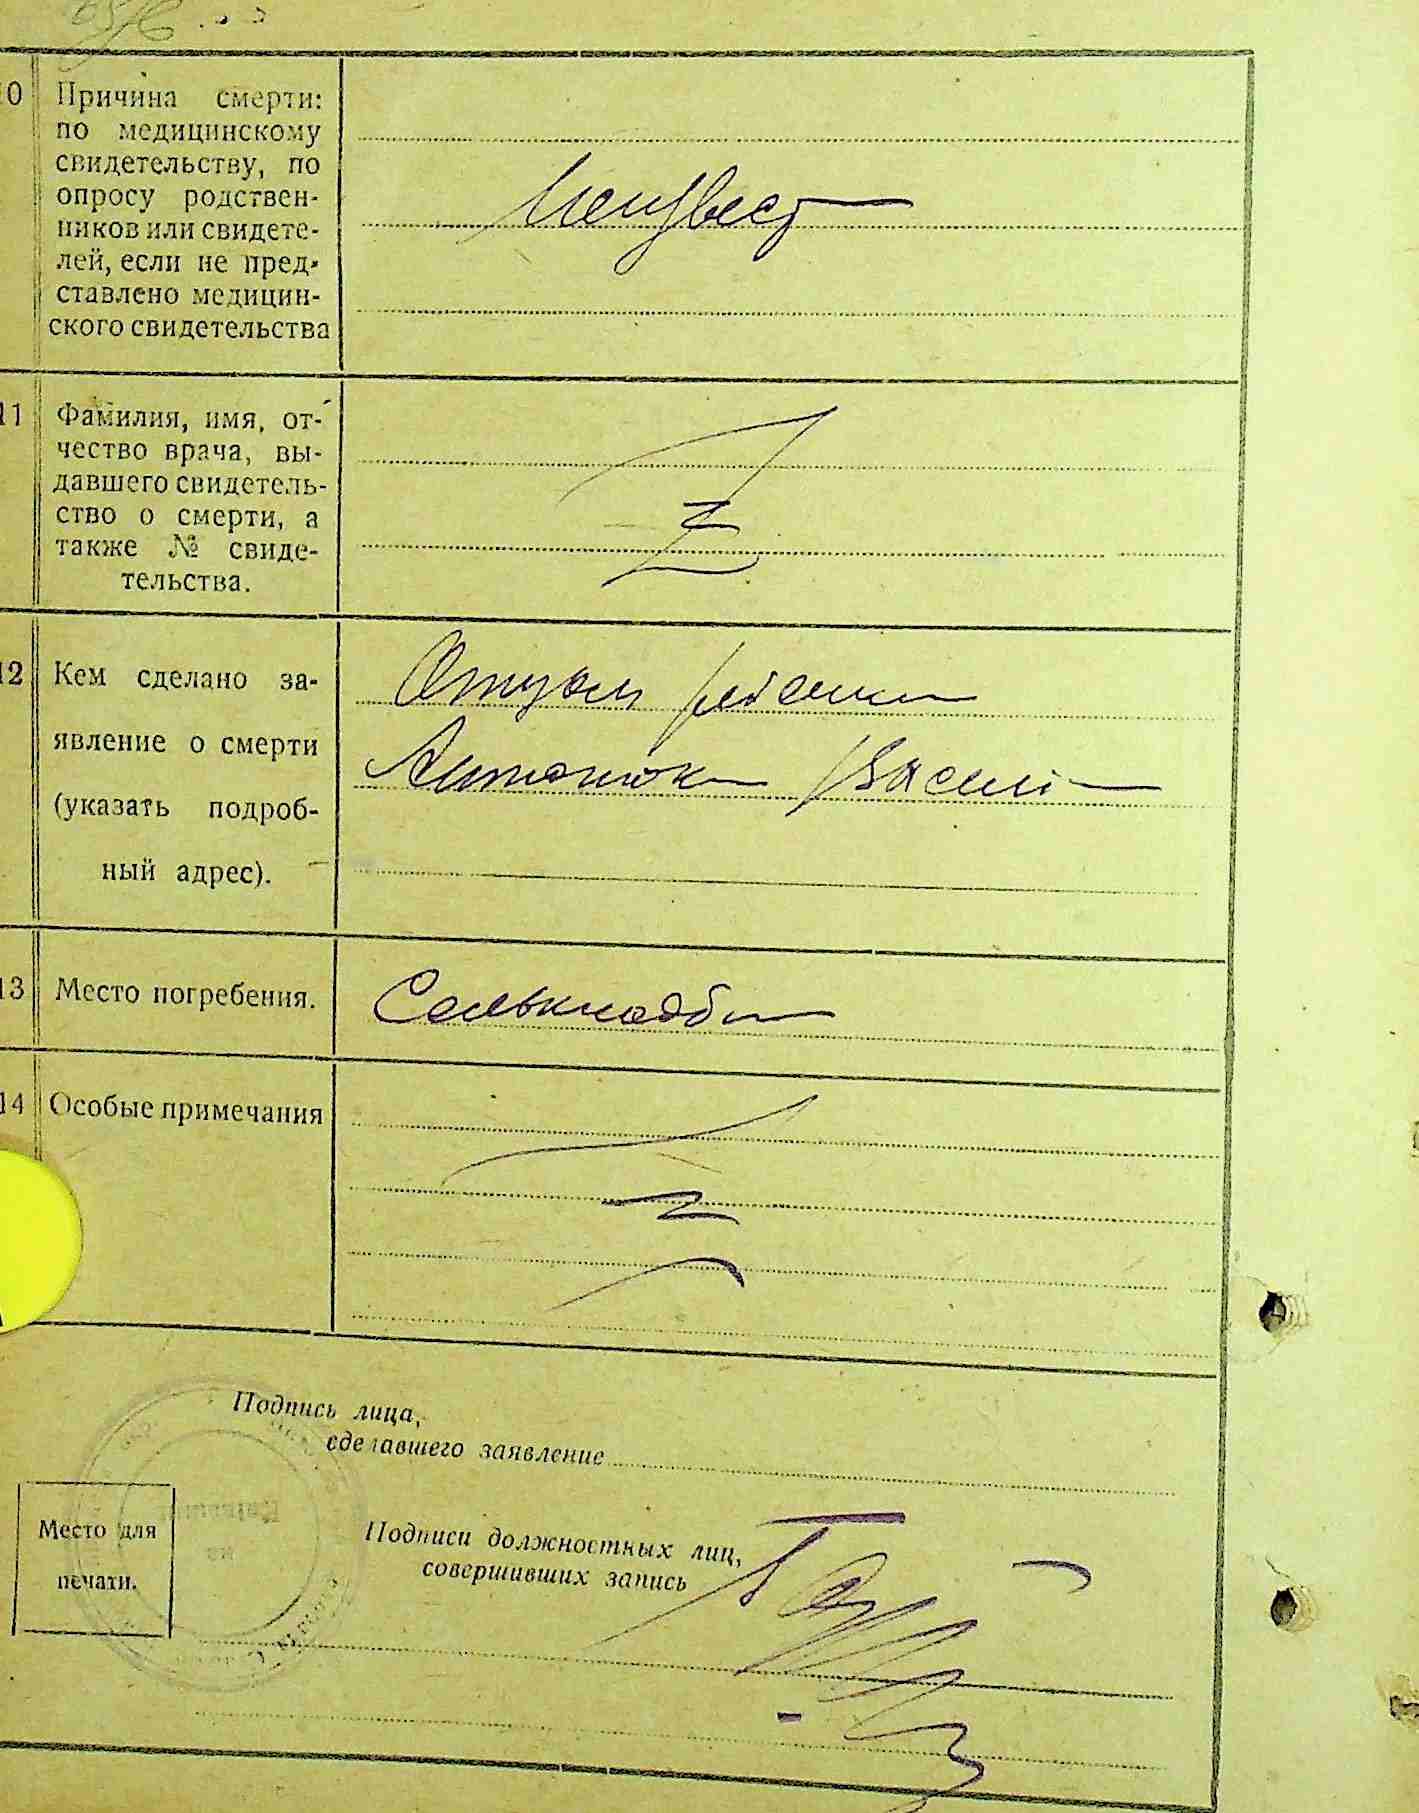 10
Причина смерти:
по медицинскому
свидетельству, по
опросу родствен-
ников или свидете-
лей, если не пред-
ставлено медицин-
ского свидетельства
Неизвест
11
Фамилия, имя, от-
чество врача, вы-
давшего свидетель-
ство о смерти, а
также № свиде-
тельства.
12
Кем сделано за-
явление о смерти
(указать подроб-
ный адрес).
Отцом ребенка
Антонюк Васили
13
Место погребения.
Селькладби
14
Особые примечания
Подпись лица,
сделавшего заявление
Место для
печати.
Подписи должностных лиц,
совершивших запись